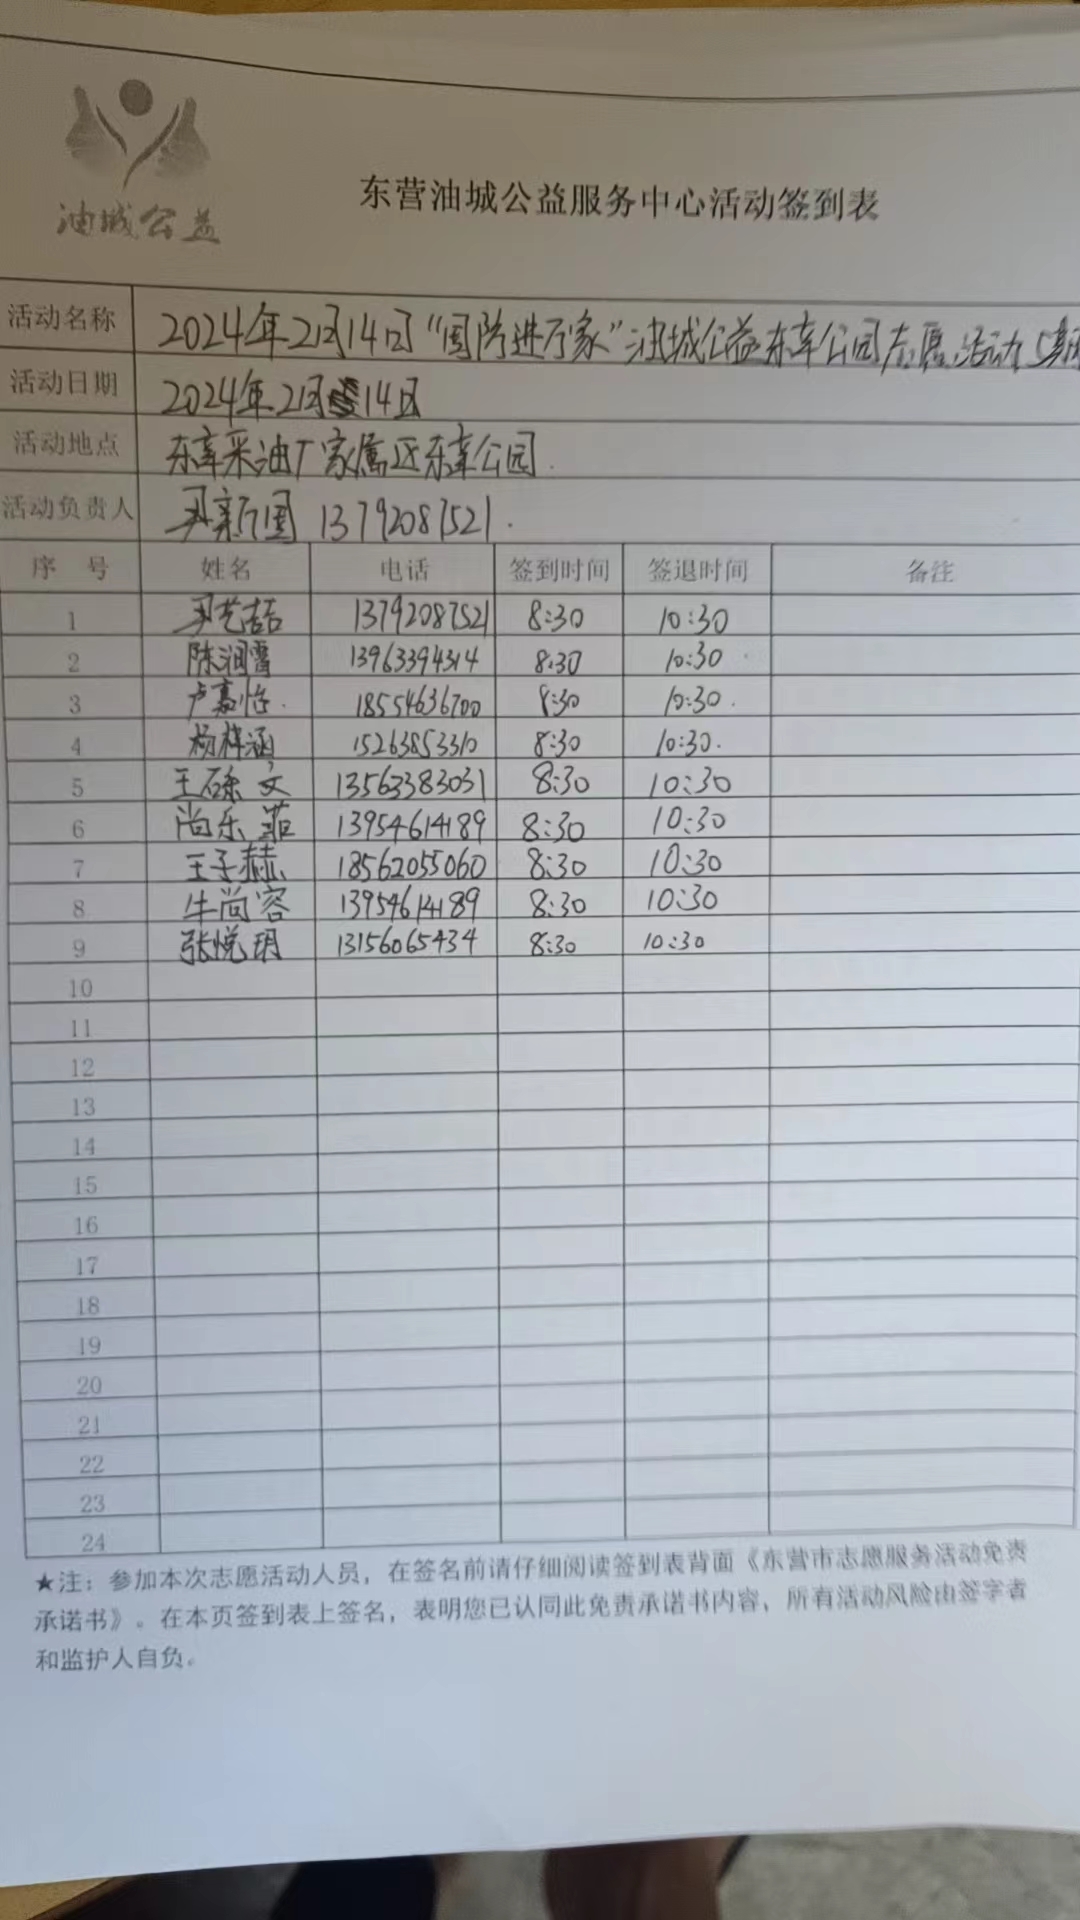 油城公益
东营油城公益服务中心活动签到表
活动名称 2024年2月14日“国防进万家”油城公益东辛公园志愿活动5期
活动日期 2024年2月14日
活动地点 东辛采油厂家属区东辛公园.
活动负责人 买新国 13792087521.
序 号 姓名 电话 签到时间 签退时间 备注
1 买艺喆 13792087521 8:30 10:30
2 陈润雪 13963394314 8:30 10:30
3 卢嘉怡. 18554636700 8:30 10:30.
4 杨梓涵 15263853310 8:30 10:30.
5 王硃文 13563383031 8:30 10:30
6 尚乐菲 13954614189 8:30 10:30
7 王子赫 18562055060 8:30 10:30
8 牛尚容 13954614189 8:30 10:30
9 张悦玥 13156065434 8:30 10:30
10
11
12
13
14
15
16
17
18
19
20
21
22
23
24
★注：参加本次志愿活动人员，在签名前请仔细阅读签到表背面《东营市志愿服务活动免责
承诺书》。在本页签到表上签名，表明您已认同此免责承诺书内容，所有活动风险由签字者
和监护人自负。